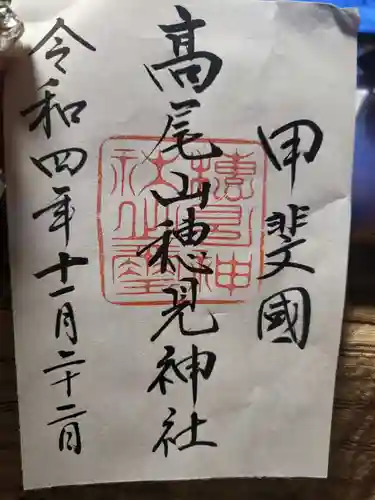 甲斐國
高尾山穂見神社
令和四年十一月二十二日
穂見神社之璽